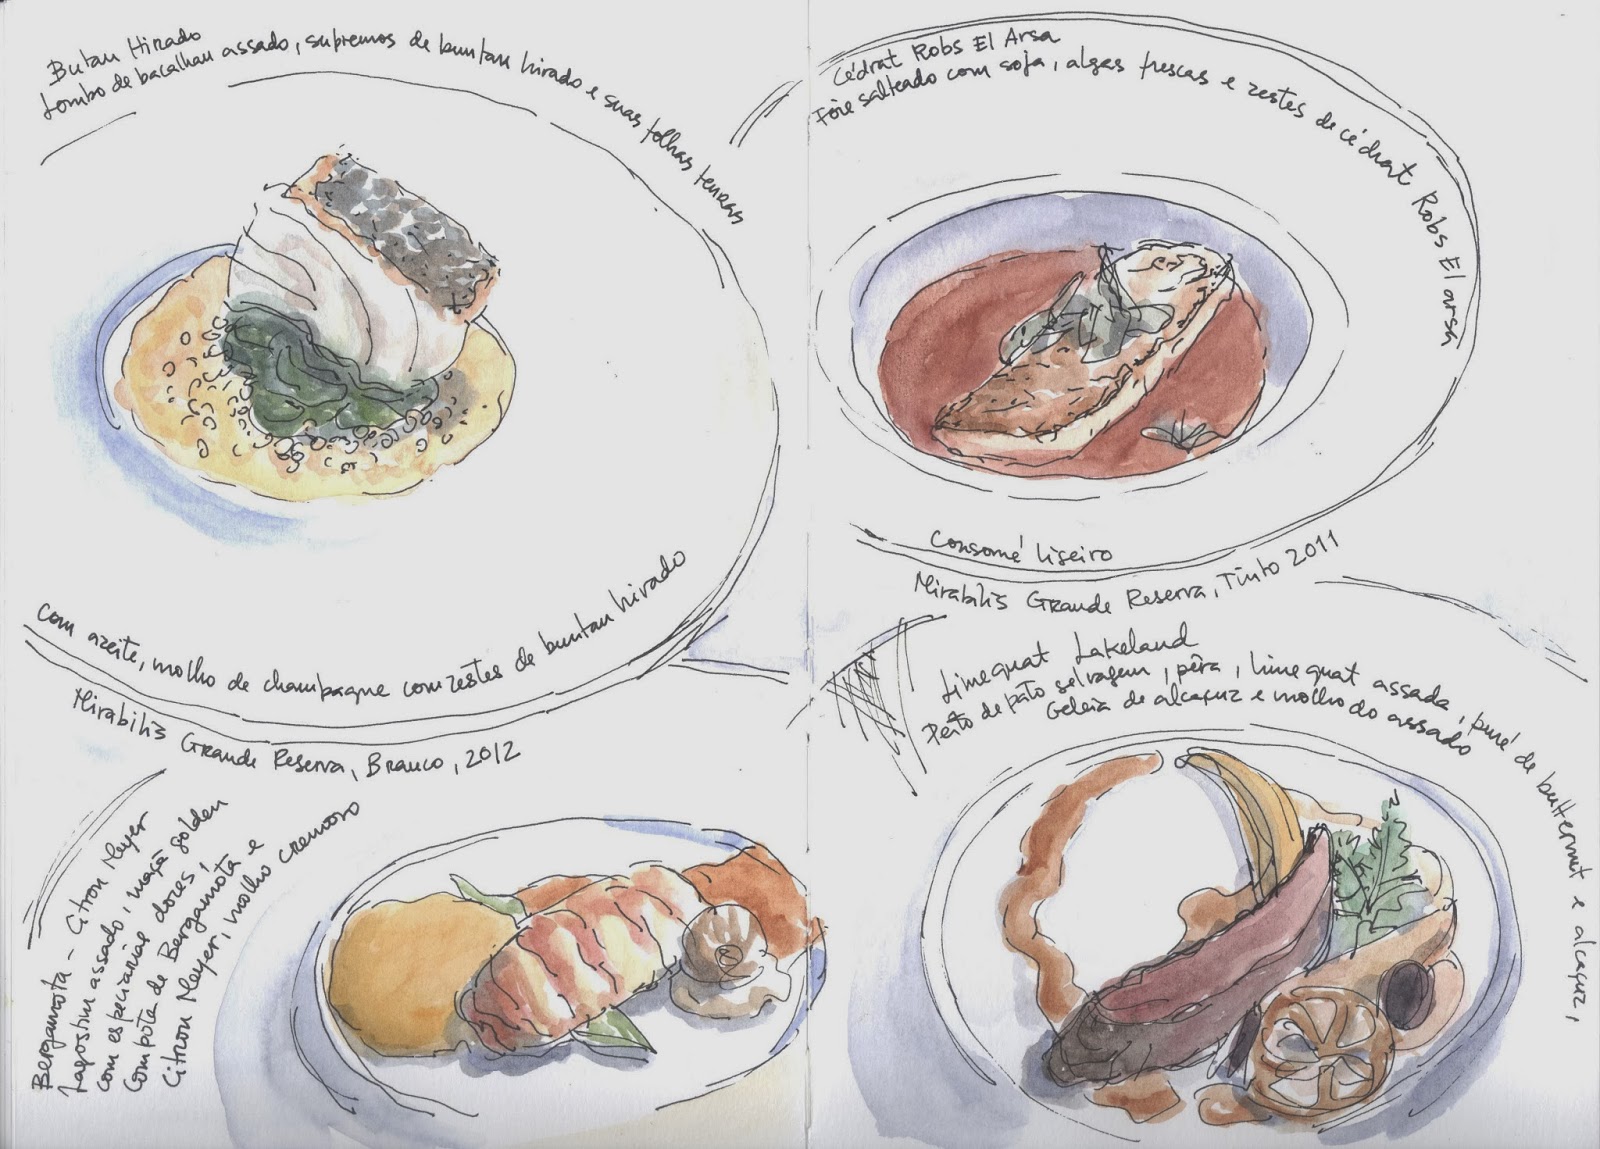 Butan Hirado
Lombo de bacalhau assado, supremos de buntan hirado e suas folhas tenras
com azeite, molho de champagne com zestes de buntan hirado
Mirabilis Grande Reserva, Branco, 2012
Bergamota - Citron Meyer
Lagostim assado, maçã golden
com especiarias doces,
Compota de Bergamota e
Citron Meyer, molho cremoso
Cédrat Robs El Arsa
Foie salteado com soja, algas frescas e zestes de cédrat Robs El arsa
Consomé ligeiro
Mirabilis Grande Reserva, Tinto 2011
Limequat Lakeland
Peito de pato selvagem, pêra, limequat assada, puré de butternut e alcaçuz,
Geleia de alcaçuz e molho do assado